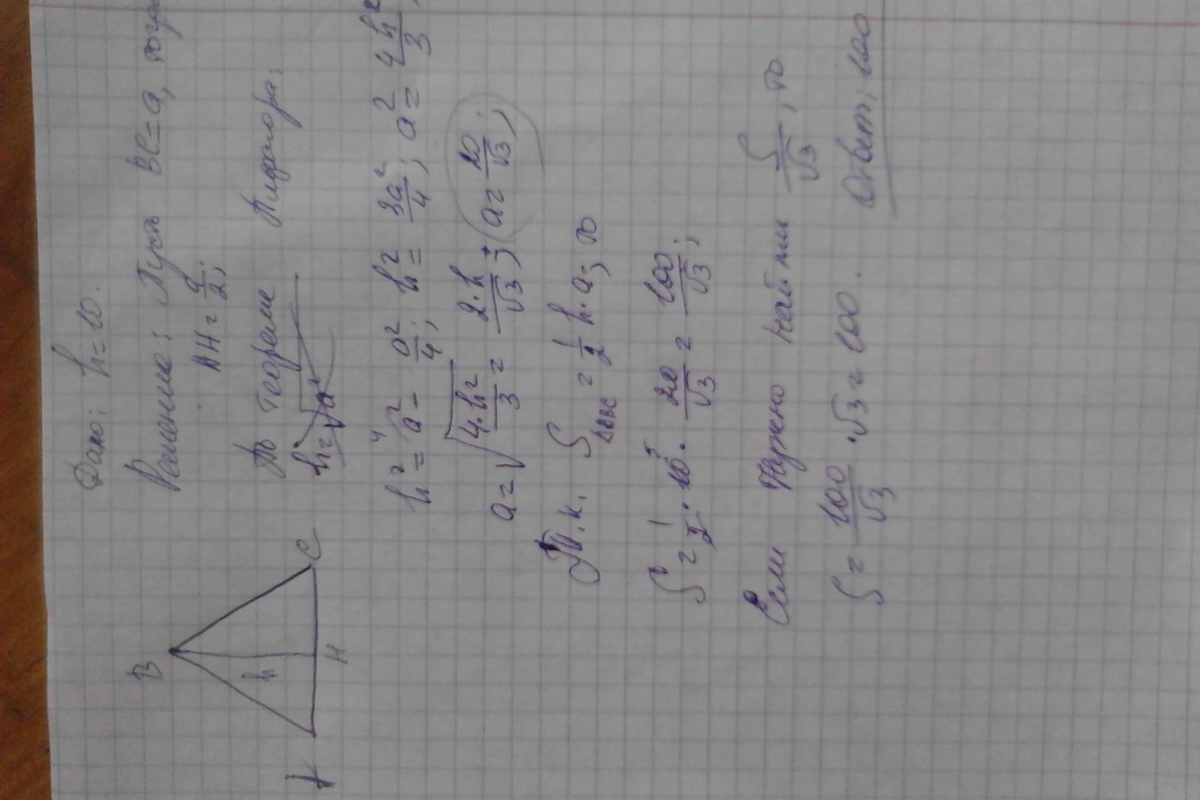 Дано: h=10.
Решение: Пусть BC=a, тогда
AH=a/2;
По теореме Пифагора:
h²=a²-a²/4; h²=3a²/4; a²=4h²/3;
a=√(4·h²/3)=2·h/√3; a=20/√3;
Т.к. S△ABC=1/2 h·a; то
S=1/2·10·20/√3=100/√3;
Если нужно найти S/√3, то
S=100/√3·√3=100.
Ответ: 100
B
h
A H C